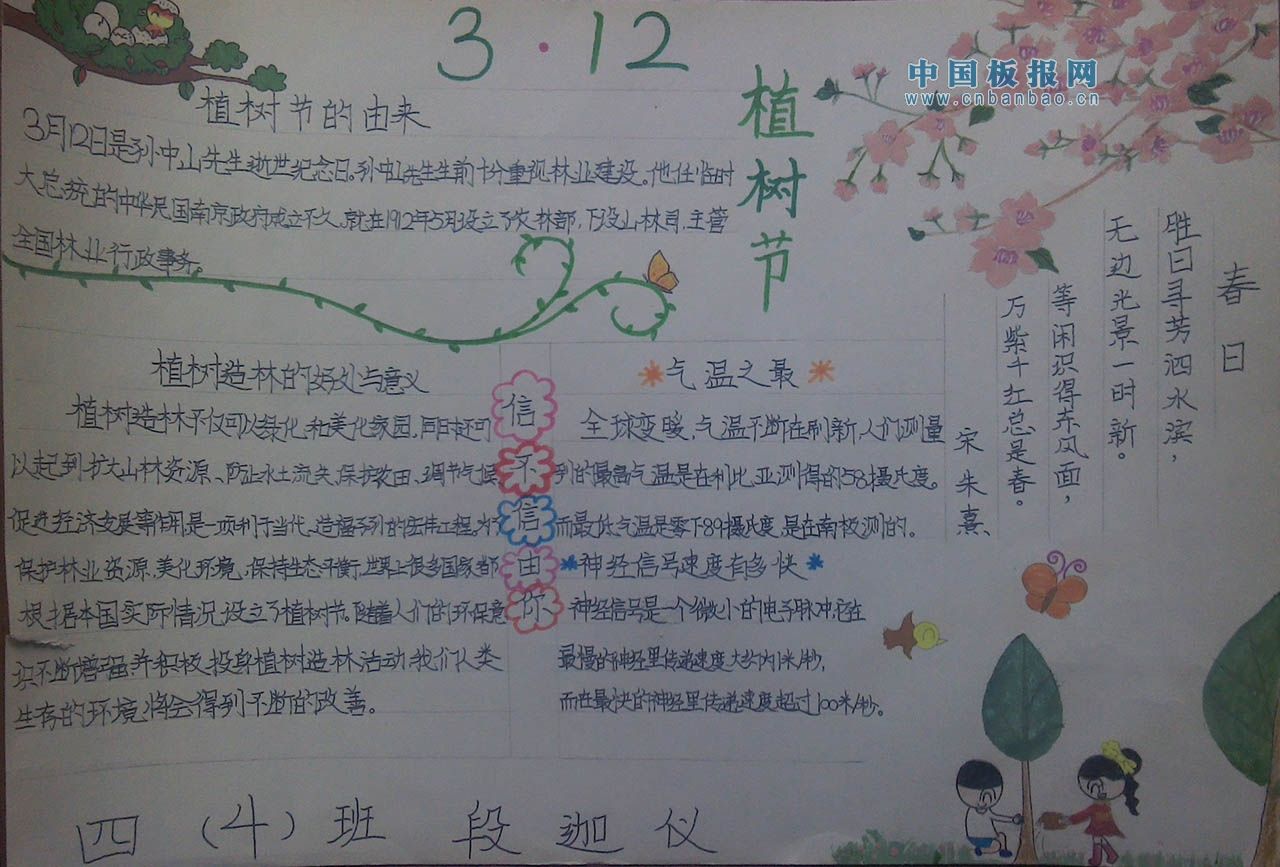 3·12
植树节
中国板报网
www.cnbanbao.cn
植树节的由来
3月12日是孙中山先生逝世纪念日。孙中山先生生前十分重视林业建设。他任临时
大总统的中华民国南京政府成立不久,就在1912年5月设立了农林部,下设山林司,主管
全国林业行政事务。
植树造林的好处与意义
植树造林不仅可以绿化和美化家园,同时还可
以起到扩大山林资源、防止水土流失、保护农田、调节气候、
促进经济发展等作用,是一项利于当代、造福子孙的宏伟工程。为了
保护林业资源,美化环境,保持生态平衡,世界上很多国家都
根据本国实际情况设立了植树节。随着人们的环保意
识不断增强,并积极投身植树造林活动,我们人类
生存的环境将会得到不断的改善。
信不信由你
气温之最
全球变暖,气温不断在刷新,人们测量
到的最高气温是在利比亚测得的58摄氏度。
而最低气温是零下89摄氏度,是在南极测的。
神经信号速度有多快
神经信号是一个微小的电子脉冲,它在
最慢的神经里传递速度大约为1米/秒,
而在最快的神经里传递速度超过100米/秒。
春日
胜日寻芳泗水滨,
无边光景一时新。
等闲识得东风面,
万紫千红总是春。
宋朱熹
四(4)班 段迦仪